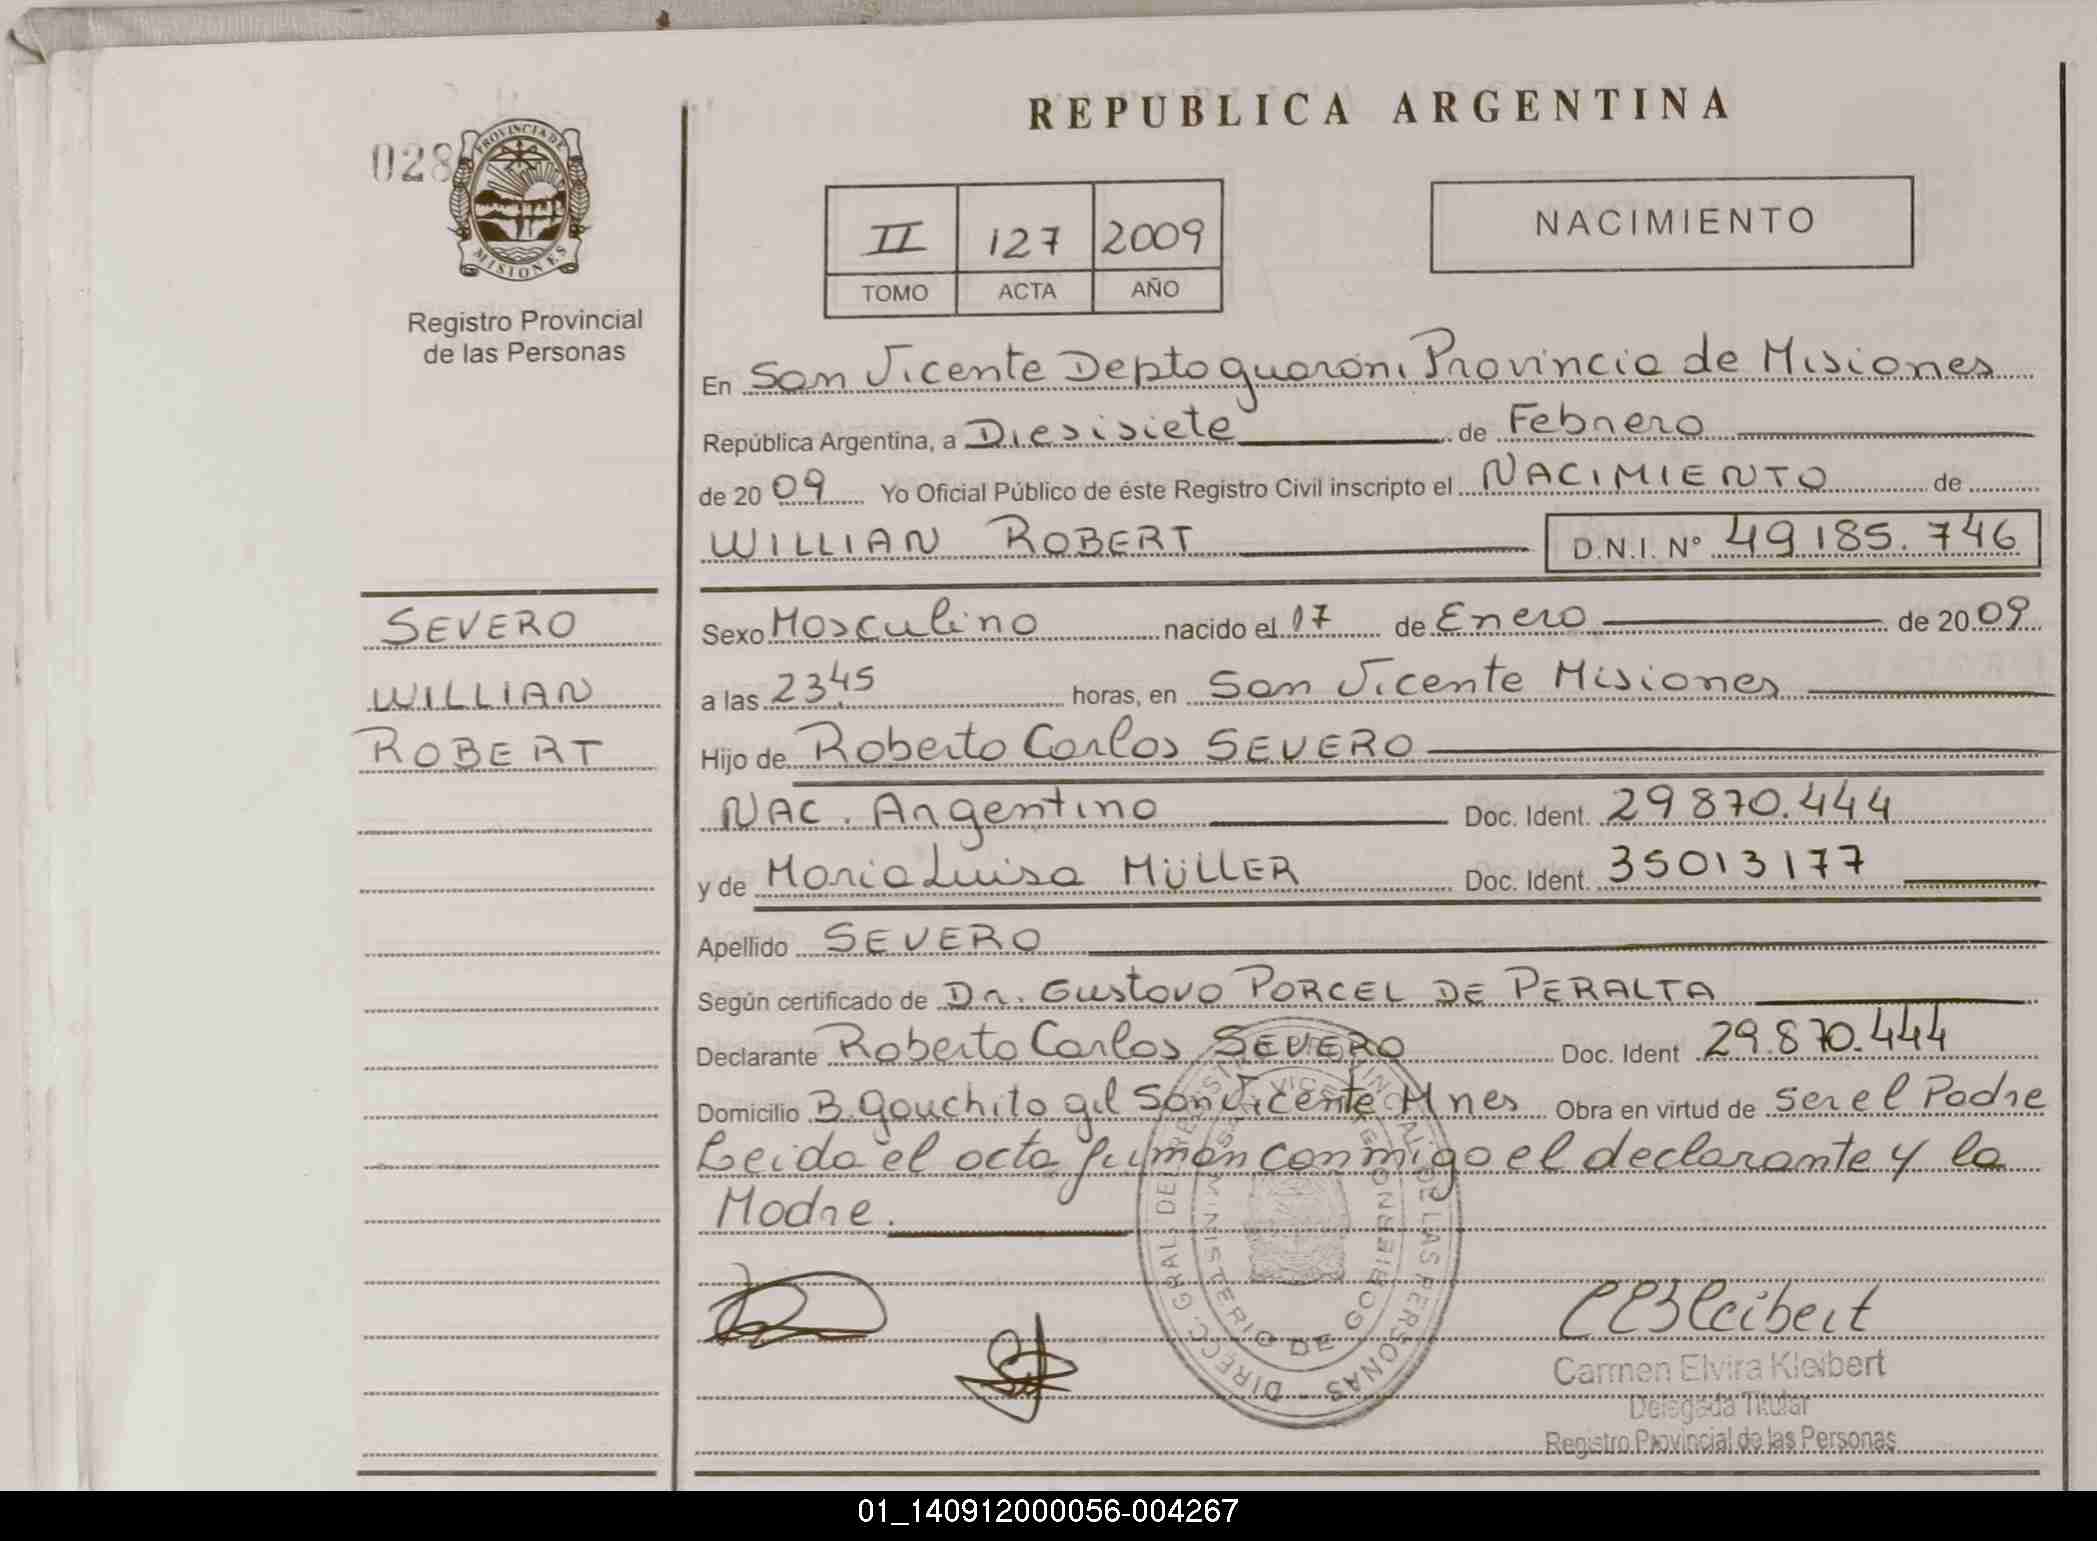 REPUBLICA ARGENTINA
028
PROVINCIA DE
MISIONES
Registro Provincial
de las Personas
II 127 2009
TOMO ACTA AÑO
NACIMIENTO
En San Vicente Depto guarani Provincia de Misiones
República Argentina, a Diesisiete de Febrero
de 20 09 Yo Oficial Público de éste Registro Civil inscripto el NACIMIENTO de
WILLIAN ROBERT D.N.I. Nº 49.185.746
SEVERO
WILLIAN
ROBERT
Sexo Masculino nacido el 17 de Enero de 20 09
a las 23,45 horas, en San Vicente Misiones
Hijo de Roberto Carlos SEVERO
NAC. Argentino Doc. Ident. 29870.444
y de Maria Luisa MÜLLER Doc. Ident. 35013177
Apellido SEVERO
Según certificado de Dr. Gustavo PORCEL DE PERALTA
Declarante Roberto Carlos SEVERO Doc. Ident 29.870.444
Domicilio B. gauchito gil San Vicente Mnes Obra en virtud de ser el Padre
Leida el acta firman conmigo el declarante y la
Madre.
DIRECC. GRAL. DE REGISTRO PROVINCIAL DE LAS PERSONAS
MINISTERIO DE GOBIERNO
CEKleibert
Carmen Elvira Kleibert
Delegada Titular
Registro Provincial de las Personas
01_140912000056-004267